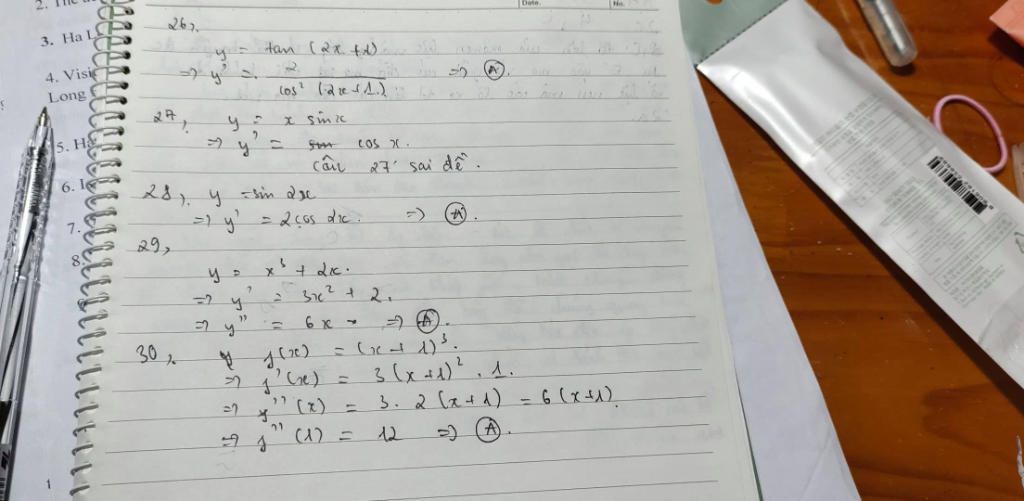 Date.
No.
3. Ha L
4. Visi
Long
5. H
6. I
7.
8.
1
26,
y = tan (2x+1)
=> y' = 2 / cos² (2x+1) => A.
27, y = x sinx
=> y' = cos x.
Câu 27 sai đề.
28, y = sin 2x
=> y' = 2cos 2x. => A.
29,
y = x³ + 2x.
=> y' = 3x² + 2.
=> y'' = 6x => A.
30, f(x) = (x+1)³.
=> f'(x) = 3(x+1)² . 1.
=> f''(x) = 3. 2(x+1) = 6(x+1)
=> f''(1) = 12 => A.